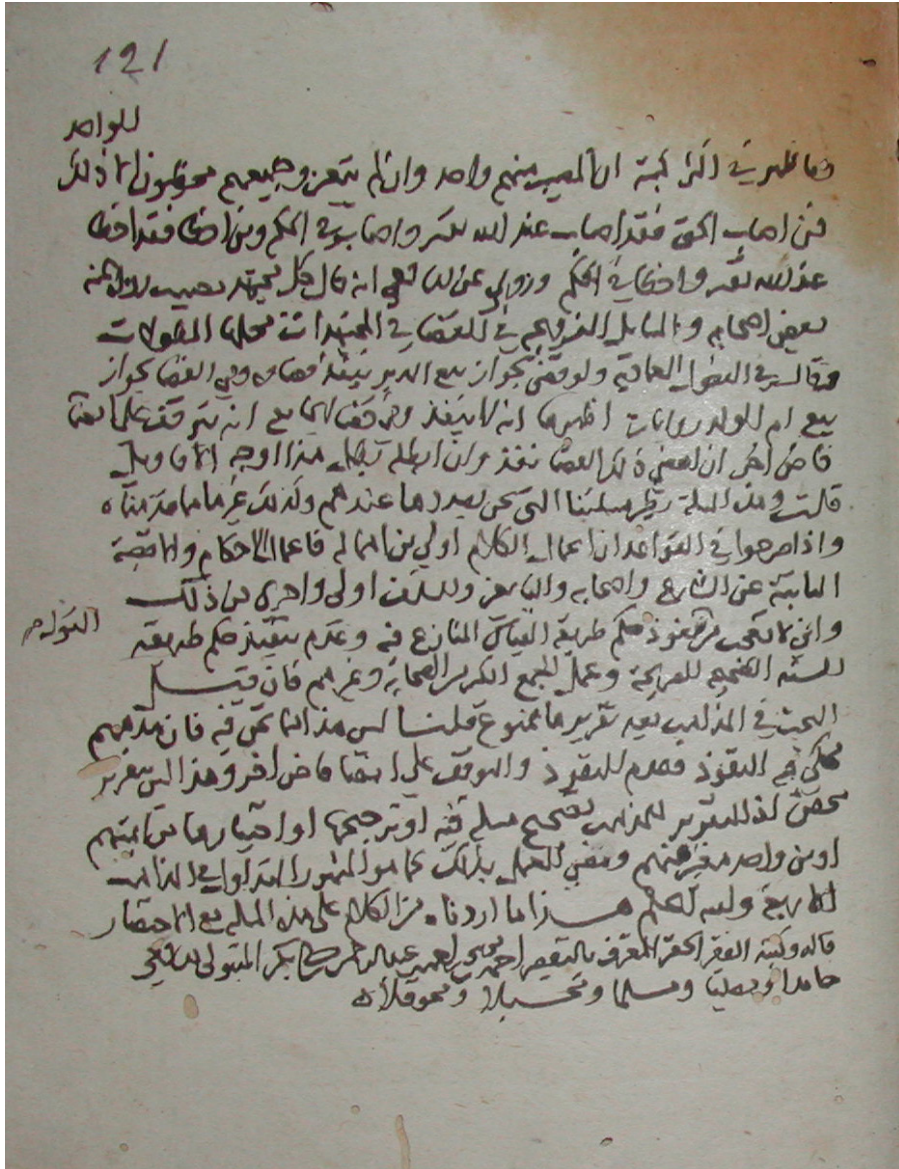 121
للواحد
في اكثر كتبه ان المصيب منهم واحد وان لم يتعين وجميعهم الا ذلك
فمن اصاب الحق فقد اصاب عند الله واصاب في الحكم ومن اخطا فقد اخطا
عند الله واخطا في الحكم وروي عن الشافعي انه قال كل مجتهد مصيب
بعض اصحابه والمسايل في القضا في المجتهدات محلها المطولات
وقال في الفصول العمادية ولو قضى بجواز بيع المدبر ينفذ قضاه وفي القضا بجواز
بيع ام الولد روايات اظهرها انه لا ينفذ وفي الجامع انه يتوقف على امضا
قاض اخر ان امضى ذلك القضا نفذ وان ابطله بطل هذا اوجه الاقاويل
قلت وهذه المسلة نظير مسلتنا التي نحن بصددها عندهم ولذلك
واذا صرحوا في القواعد ان اعمال الكلام اولى من اهماله فاعمال الاحكام والاقضية
الثابتة عن الشارع واصحابه والتابعين والسلف اولى واحرى من ذلك
واني لاتعجب من نفوذ حكم طريقه القياس المتنازع فيه وعدم تنفيذ حكم طريقه
التوكيد
السنه الصحيح الصريحة وعمل الجمع الكبير من الصحابة وغيرهم فان قيل
البحث في المذاهب بعد تقريرها ممنوع قلنا ليس هذا مما نحن فيه فان مذهبهم
محكي فيه النفوذ وعدم النفوذ والتوقف على امضا قاض اخر وهذا ليس بتقرير
محض اذ التقرير للمذاهب تصحيح مسلة فيه او ترجيحها او اختيارها من ايمتهم
او من واحد منهم ومضى العمل بذلك كما هو المشهور المتداول في المذاهب
الاربعة والله اعلم هذا ما اردناه من الكلام على هذه المسلة مع الاختصار
قاله وكتبه الفقير الحقير المعترف بالتقصير احمد بكر المتولي الشافعي
حامدا ومصليا ومسلما ومحسبلا ومحوقلا